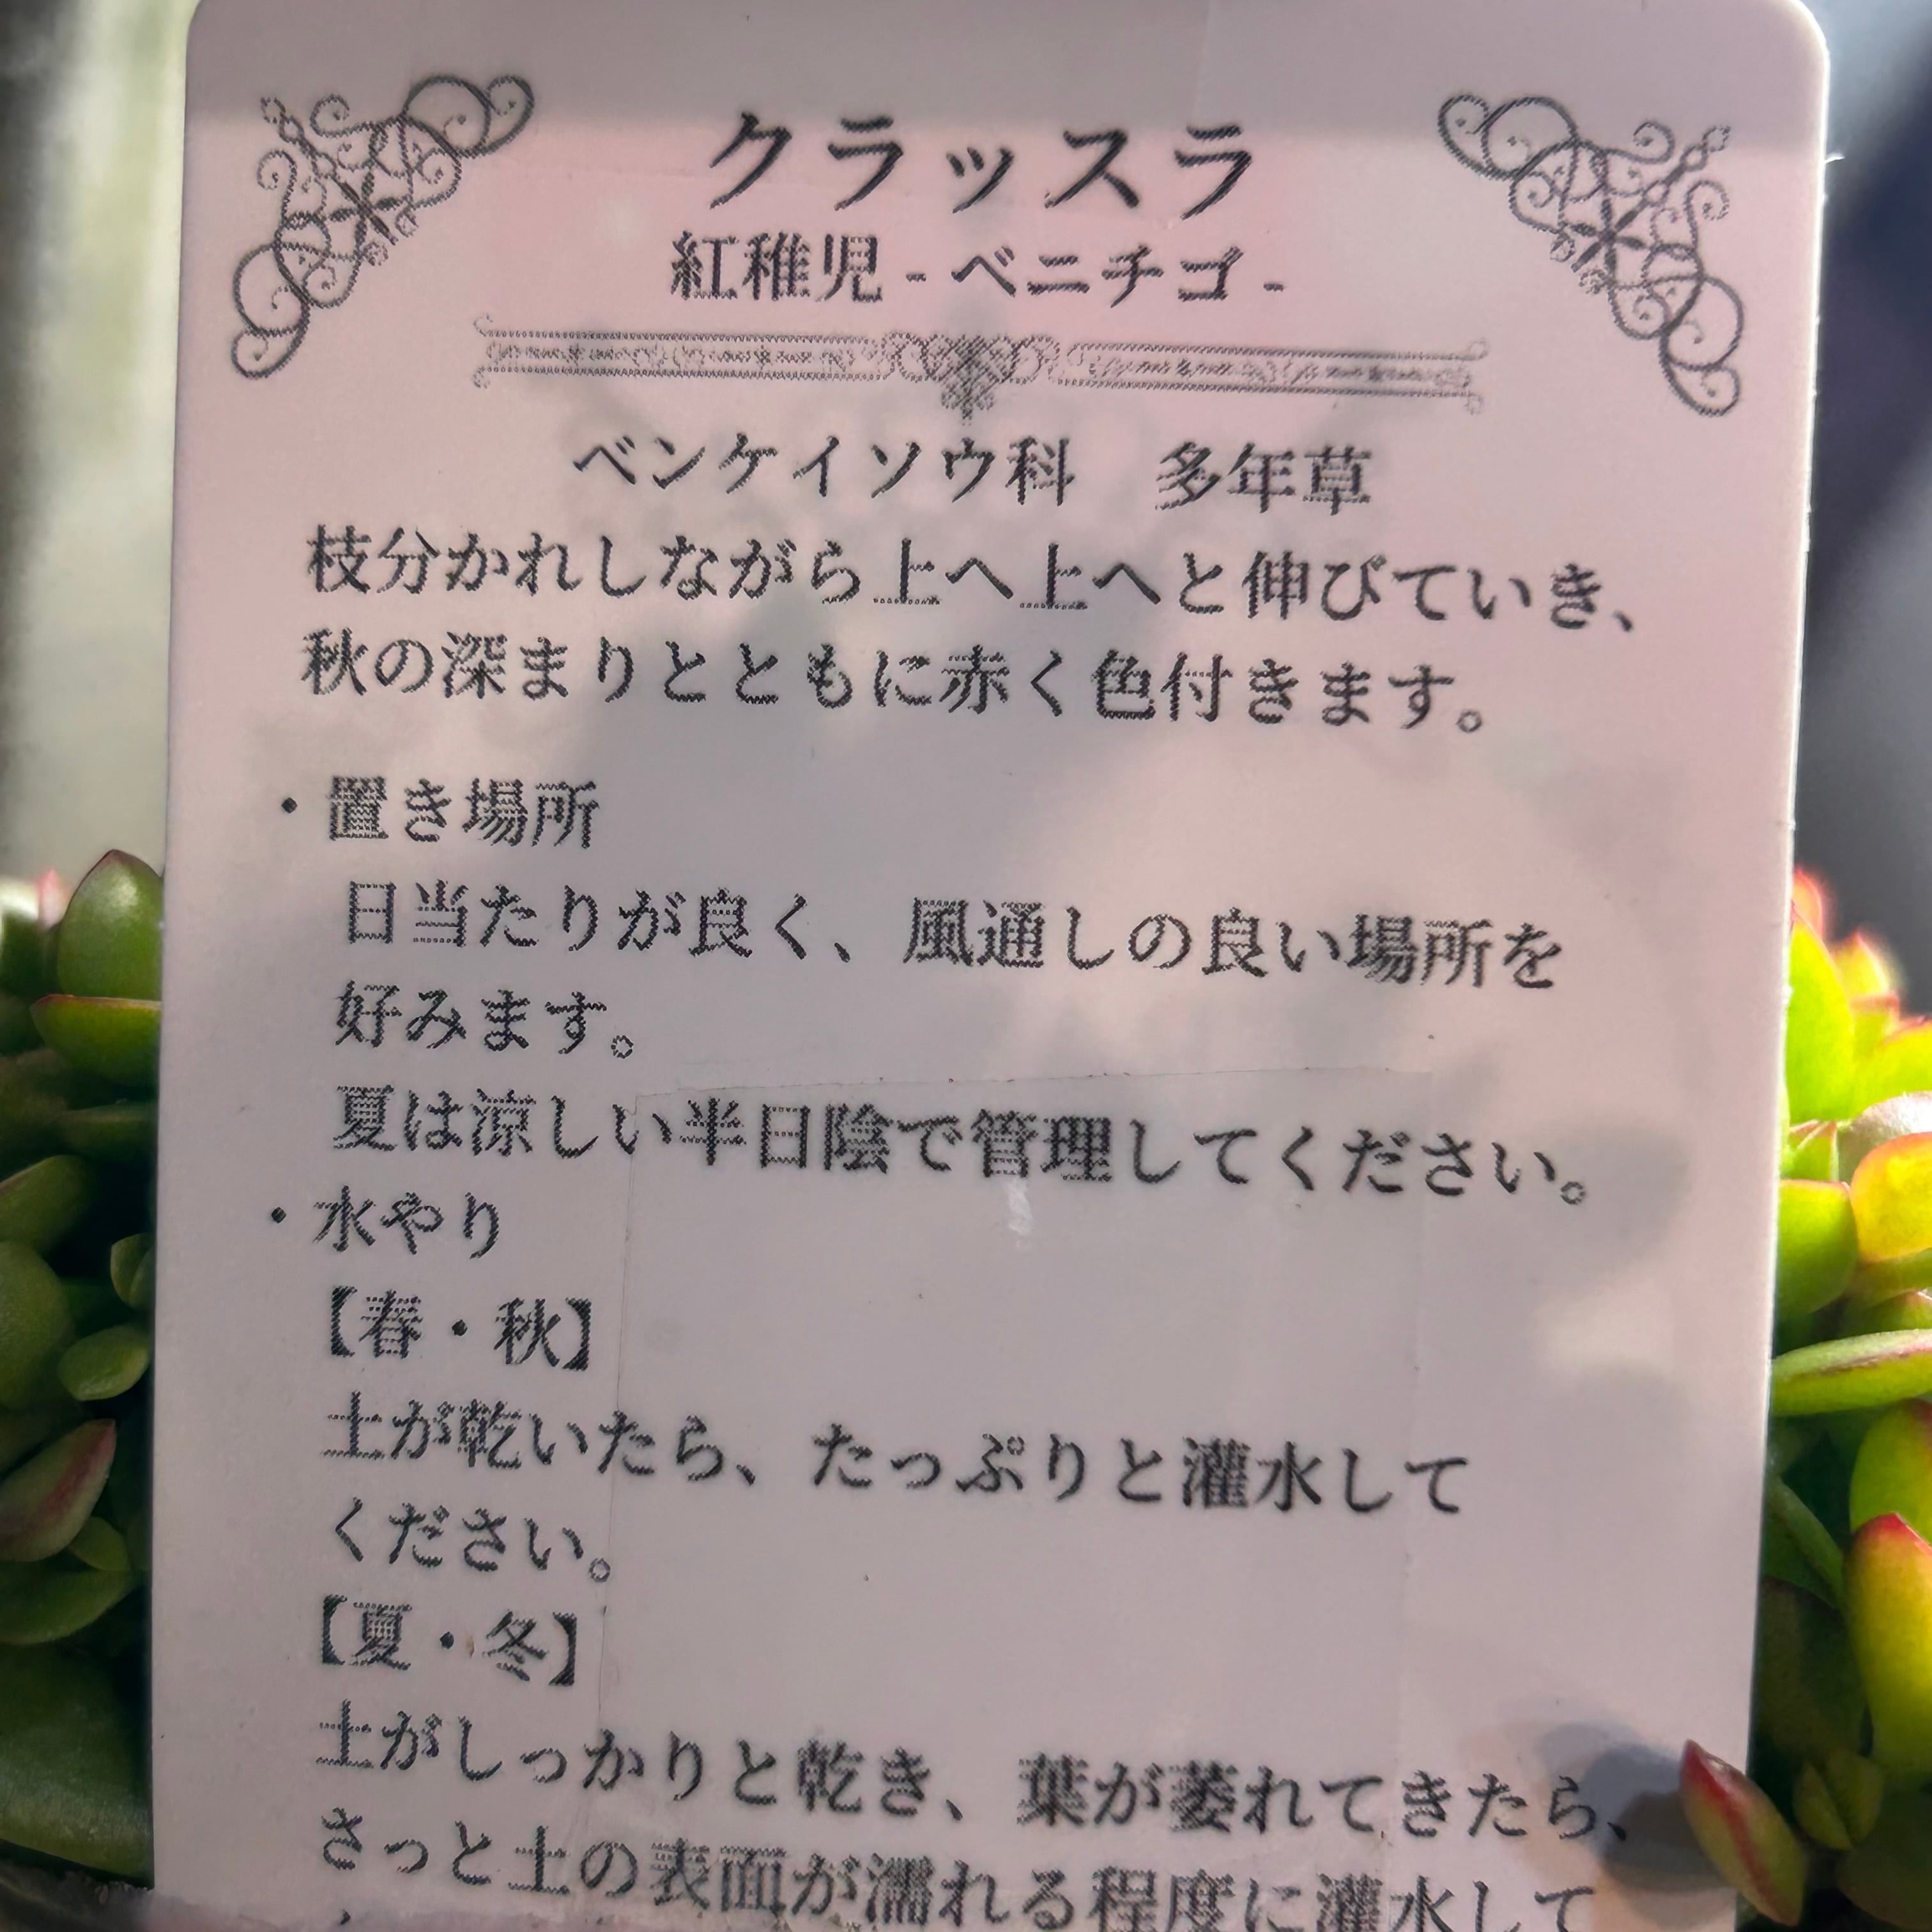 クラッスラ
紅稚児 - ベニチゴ -
ベンケイソウ科　多年草
枝分かれしながら上へ上へと伸びていき、
秋の深まりとともに赤く色付きます。
・置き場所
日当たりが良く、風通しの良い場所を
好みます。
夏は涼しい半日陰で管理してください。
・水やり
【春・秋】
土が乾いたら、たっぷりと灌水して
ください。
【夏・冬】
土がしっかりと乾き、葉が萎れてきたら、
さっと土の表面が濡れる程度に灌水して